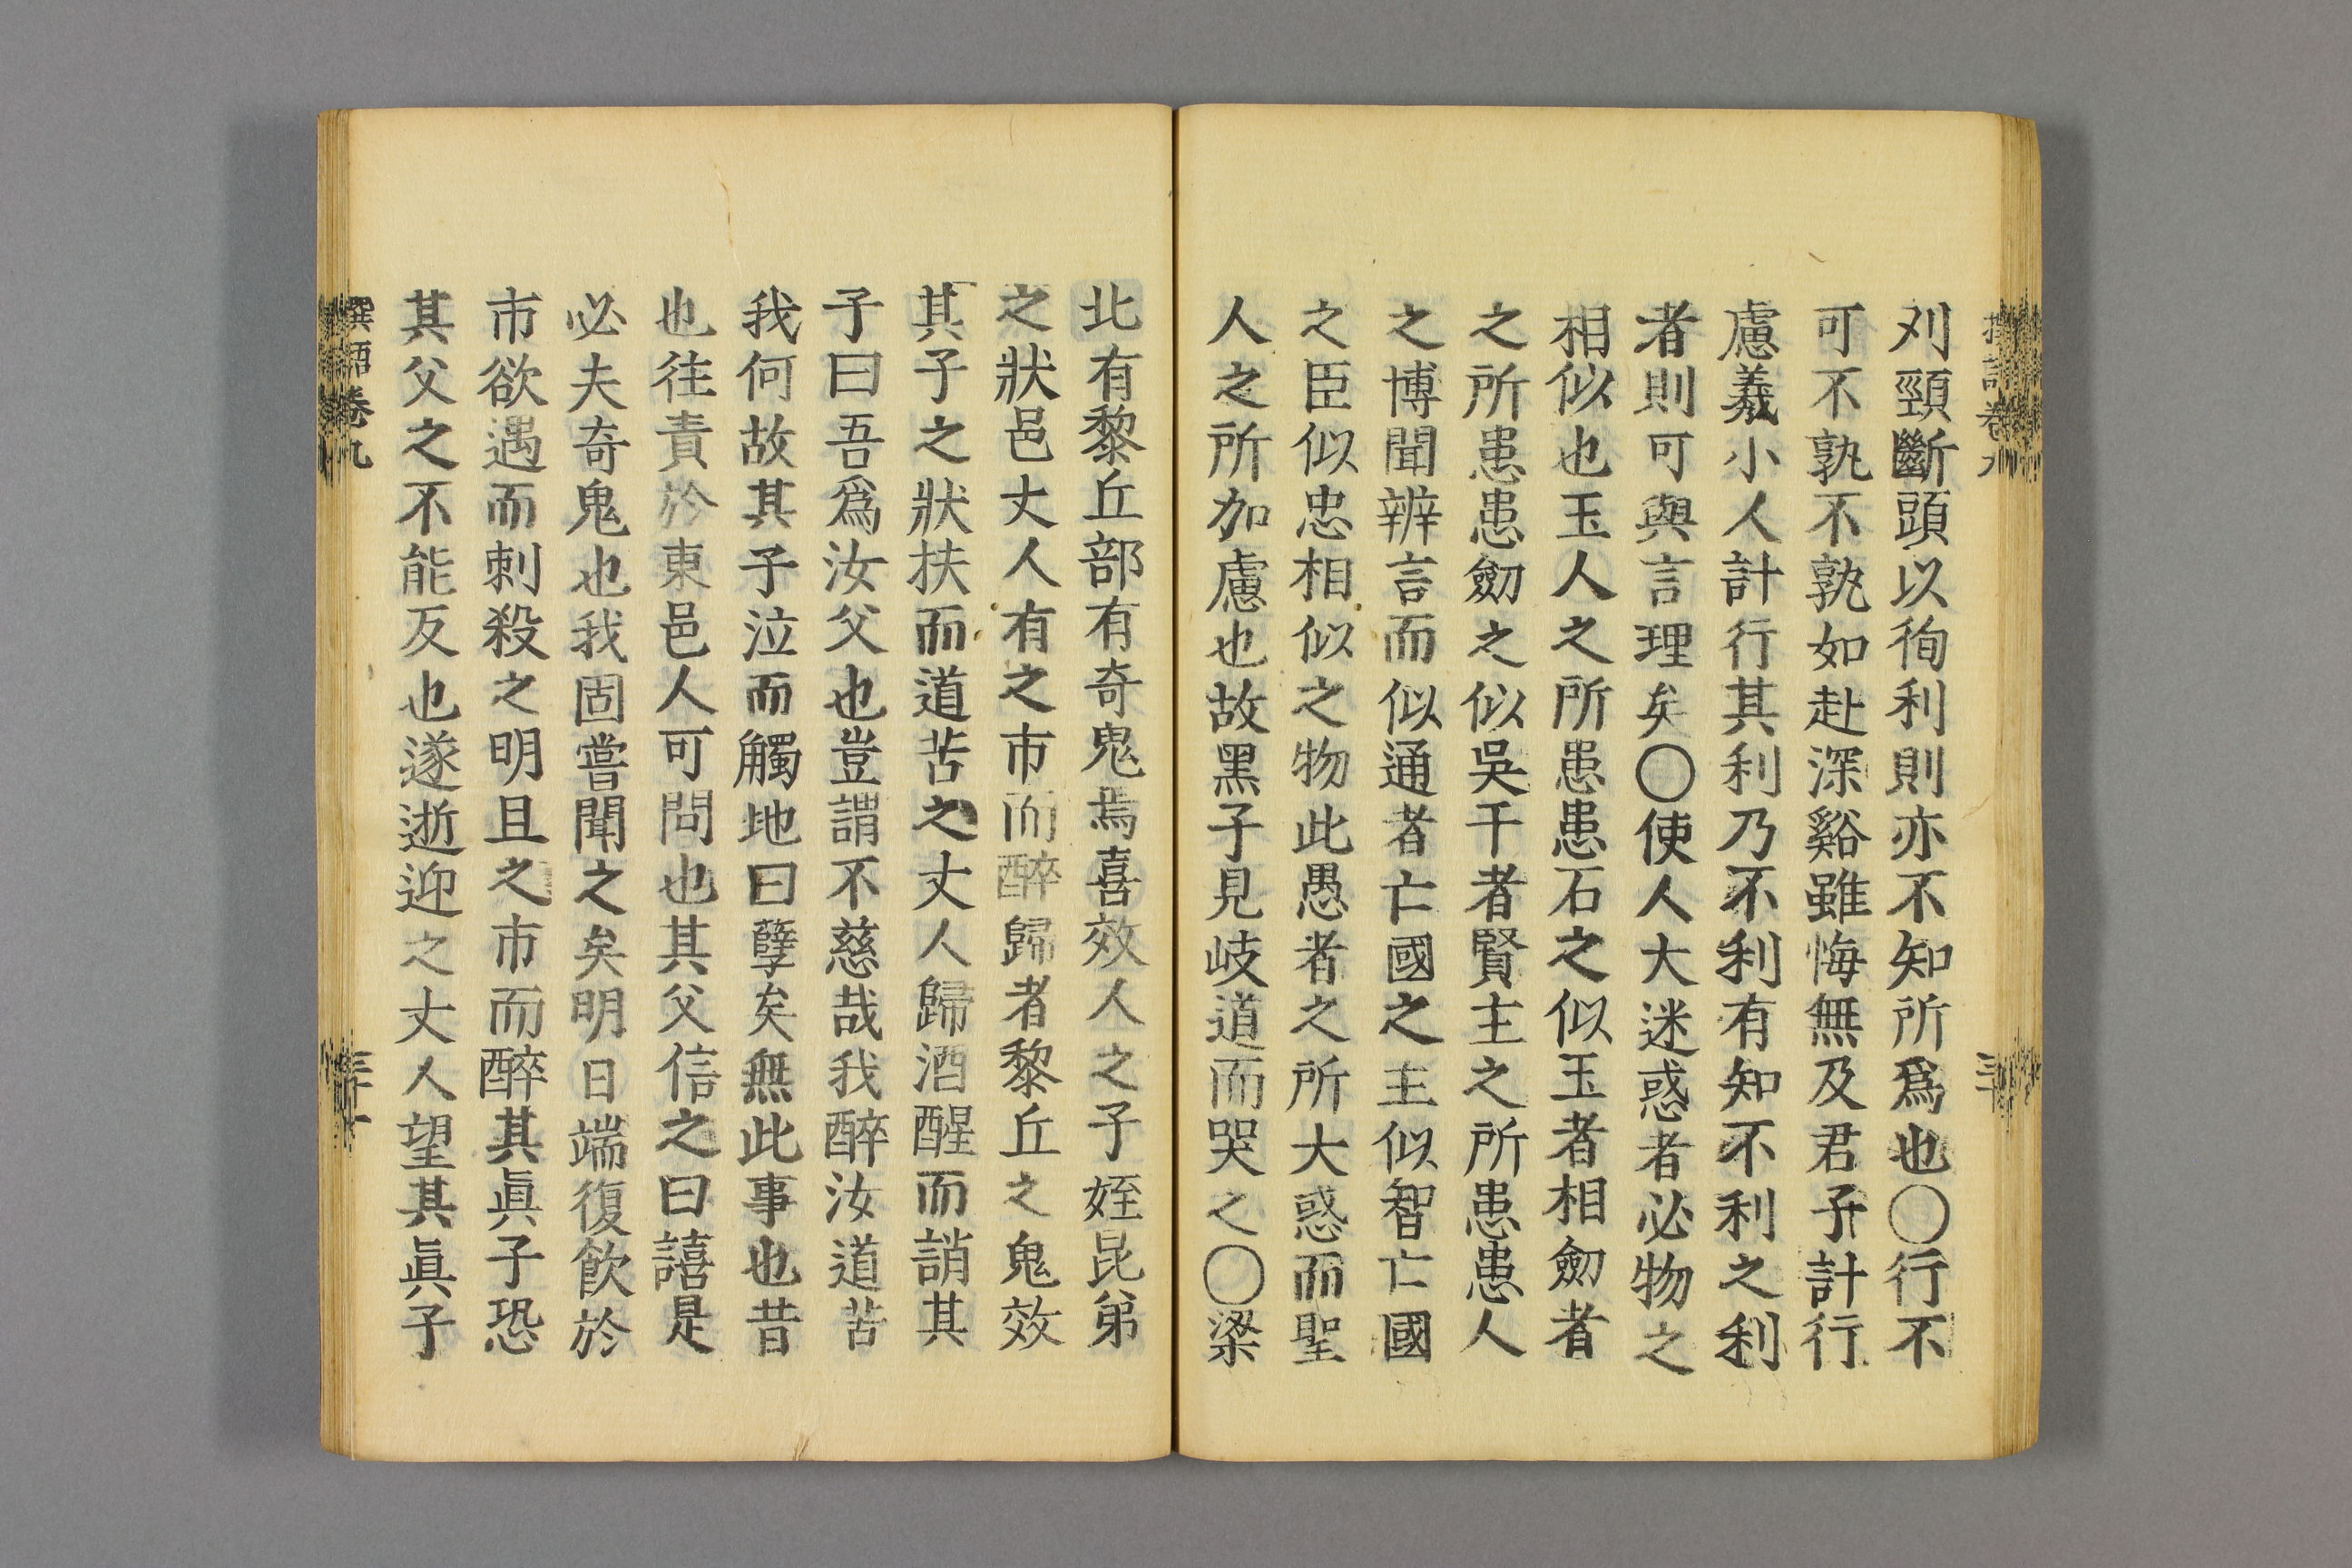 刈頸斷頭以徇利則亦不知所爲也○行不
可不孰不孰如赴深谿雖悔無及君子計行
慮義小人計行其利乃不利有知不利之利
者則可與言理矣○使人大迷惑者必物之
相似也玉人之所患患石之似玉者相劒者
之所患患劒之似吳干者賢主之所患患人
之博聞辨言而似通者亡國之主似智亡國
之臣似忠相似之物此愚者之所大惑而聖
人之所加慮也故黑子見岐道而哭之○梁
北有黎丘部有奇鬼焉喜效人之子姪昆弟
之狀邑丈人有之市而醉歸者黎丘之鬼效
其子之狀扶而道苦之丈人歸酒醒而誚其
子曰吾爲汝父也豈謂不慈哉我醉汝道苦
我何故其子泣而觸地曰孽矣無此事也昔
也往責於東邑人可問也其父信之曰譆是
必夫奇鬼也我固嘗聞之矣明日端復飮於
市欲遇而刺殺之明旦之市而醉其眞子恐
其父之不能反也遂逝迎之丈人望其眞子
撰語卷九
三十一